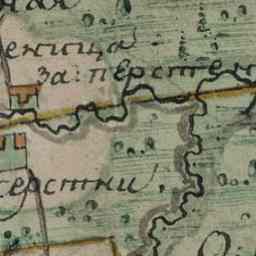 ная
еница
за: перстен
ерстни